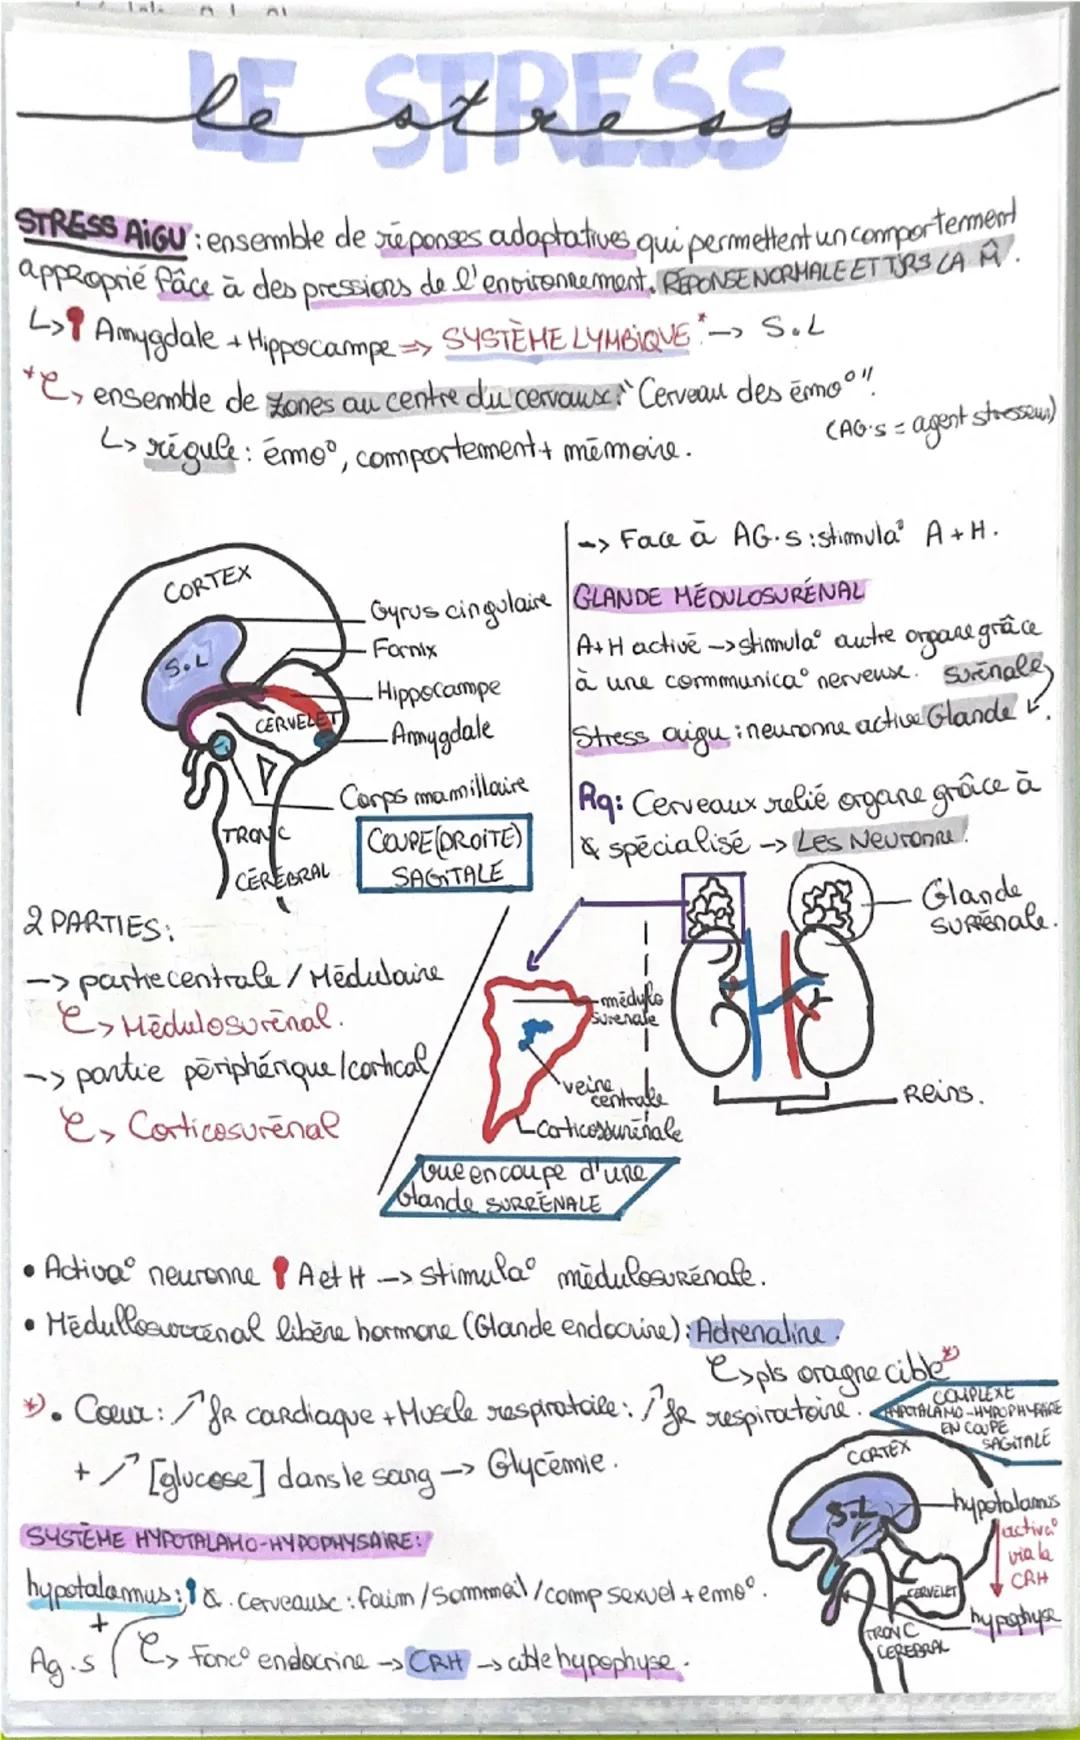 LE STRESS
le stress
STRESS AiGU : ensemble de réponses adaptatives qui permettent un comportement
approprié fâce à des pressions de l'environnement. RÉPONSE NORMALE ET TJRS LA M̂.
↳ Amygdale + Hippocampe ⇒ SYSTÈME LYMBiQUE * → S.L
* ↳ ensemble de zones au centre du cerveaux : "Cerveau des émo°".
(AG.s = agent stresseur)
↳ régule : émo°, comportement + mémoire.
CORTEX
S.L
CERVELET
TRONC
CÉRÉBRAL
Gyrus cingulaire
Fornix
Hippocampe
Amygdale
Corps mamillaire
COUPE (DROITE)
SAGITALE
--> Face à AG.s : stimula° A + H.
GLANDE MÉDULOSURÉNAL
A+H activé --> stimula° autre organe grâce
à une communica° nerveuse. surénale
Stress aigu : neuronne active Glande
Rq : Cerveaux relié organe grâce à
& spécialisé --> Les Neuronne !
2 PARTIES :
--> partie centrale / Médulaire
↳ Médulosurénal.
--> partie périphérique / cortical
↳ Corticosurénal
médulo
surenale
veine
centrale
Corticossurénale
Vue en coupe d'une
Glande SURRÉNALE
Glande
surrénale.
Reins.
• Activa° neuronne A et H --> stimula° médulosurénale.
• Médullosurrénal libère hormone (Glande endocrine) : Adrenaline.
↳ pls oragne cible *)
*). Cœur : ↗ fR cardiaque + Muscle respiratoire : ↗ fR respiratoire.
+ ↗ [glucose] dans le sang --> Glycémie.
COMPLEXE
HYPOTALAMO-HYPOPHYSAIRE
EN COUPE
SAGITALE
SYSTÈME HYPOTALAMO-HYPOPHYSAIRE :
hypotalamus : & . Cerveaux : faim / Sommeil / comp sexuel + emo°.
+
Ag.s ↳ Fonc° endocrine → CRH → cible hypophyse.
CORTEX
S.L
CERVELET
TRONC
CEREBRAL
hypotalamus
activa°
via la
CRH
hypophyse